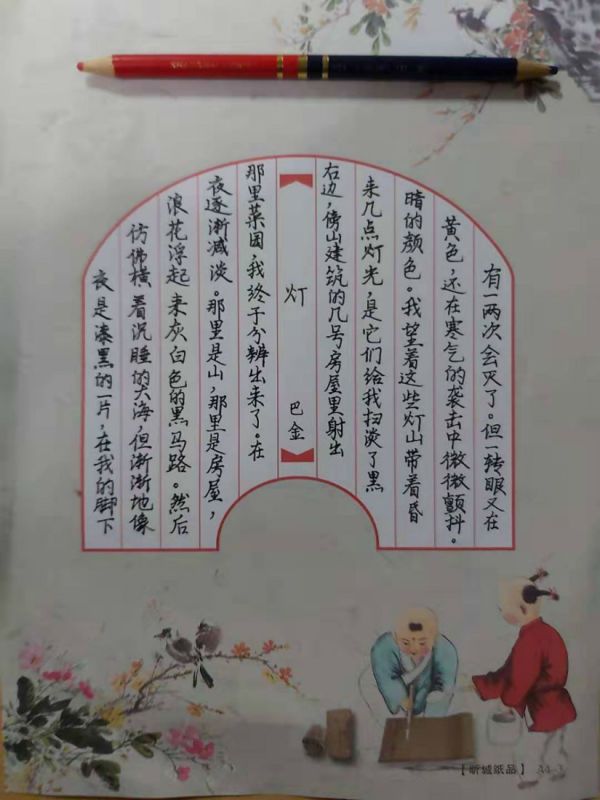 夜是漆黑的一片，在我的脚下
仿佛横着沉睡的大海，但渐渐地像
浪花浮起来灰白色的黑马路。然后
夜逐渐减淡。那里是山，那里是房屋，
那里菜园，我终于分辨出来了。在
灯
巴金
右边，傍山建筑的几号房屋里射出
来几点灯光，是它们给我扫淡了黑
暗的颜色。我望着这些灯山带着昏
黄色，还在寒气的袭击中微微颤抖。
有一两次会灭了。但一转眼又在
【昕城纸品】 A4-3